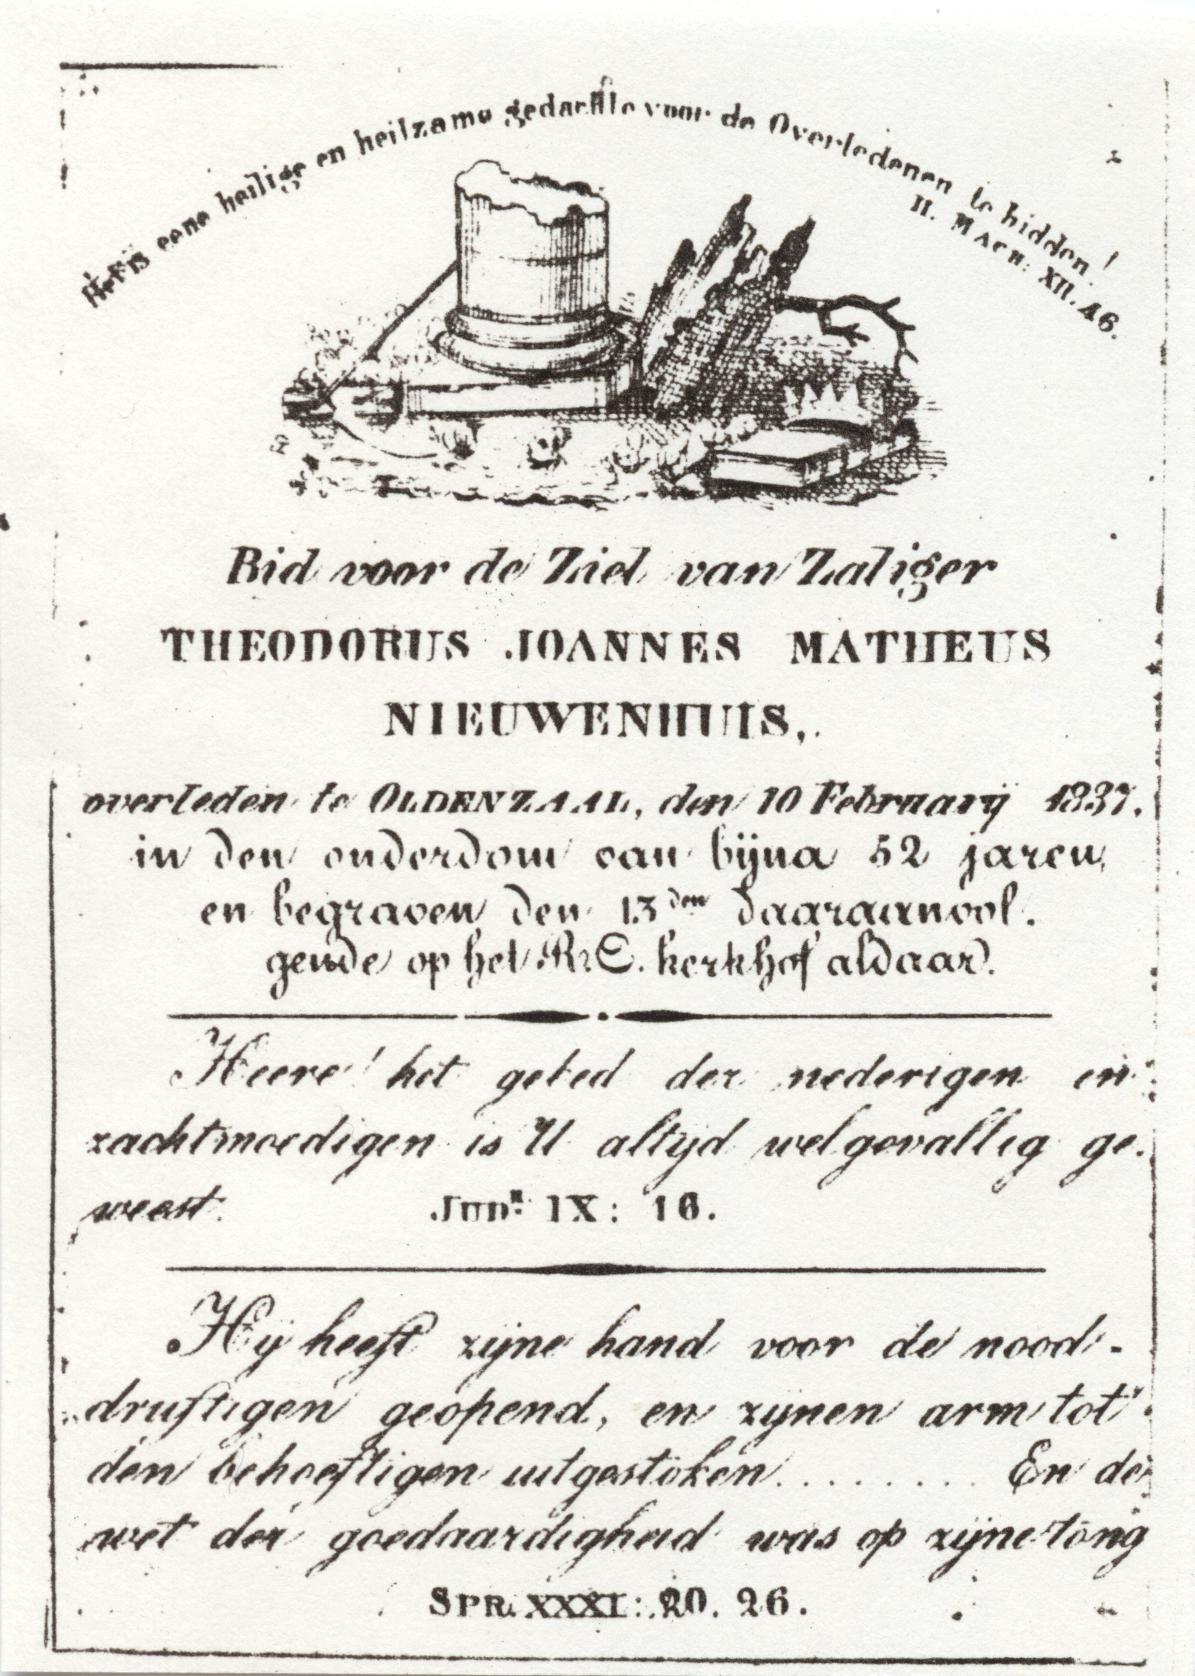 Het is eene heilige en heilzame gedachte voor de Overledenen te bidden!
II. MACH: XII. 46.
Bid voor de Ziel van Zaliger
THEODORUS JOANNES MATHEUS
NIEUWENHUIS,
overleden te OLDENZAAL, den 10 Februarij 1837.
in den ouderdom van bijna 52 jaren,
en begraven den 13den daaraanvol.
gende op het R: C. kerkhof aldaar.
Heere! het gebed der nederigen en
zachtmoedigen is U altijd welgevallig ge-
weest. JUDH: IX: 16.
Hij heeft zijne hand voor de nood-
druftigen geopend, en zijnen arm tot
den behoeftigen uitgestoken......... En de
wet der goedaardigheid was op zijne tong
SPR. XXXI: 20. 26.